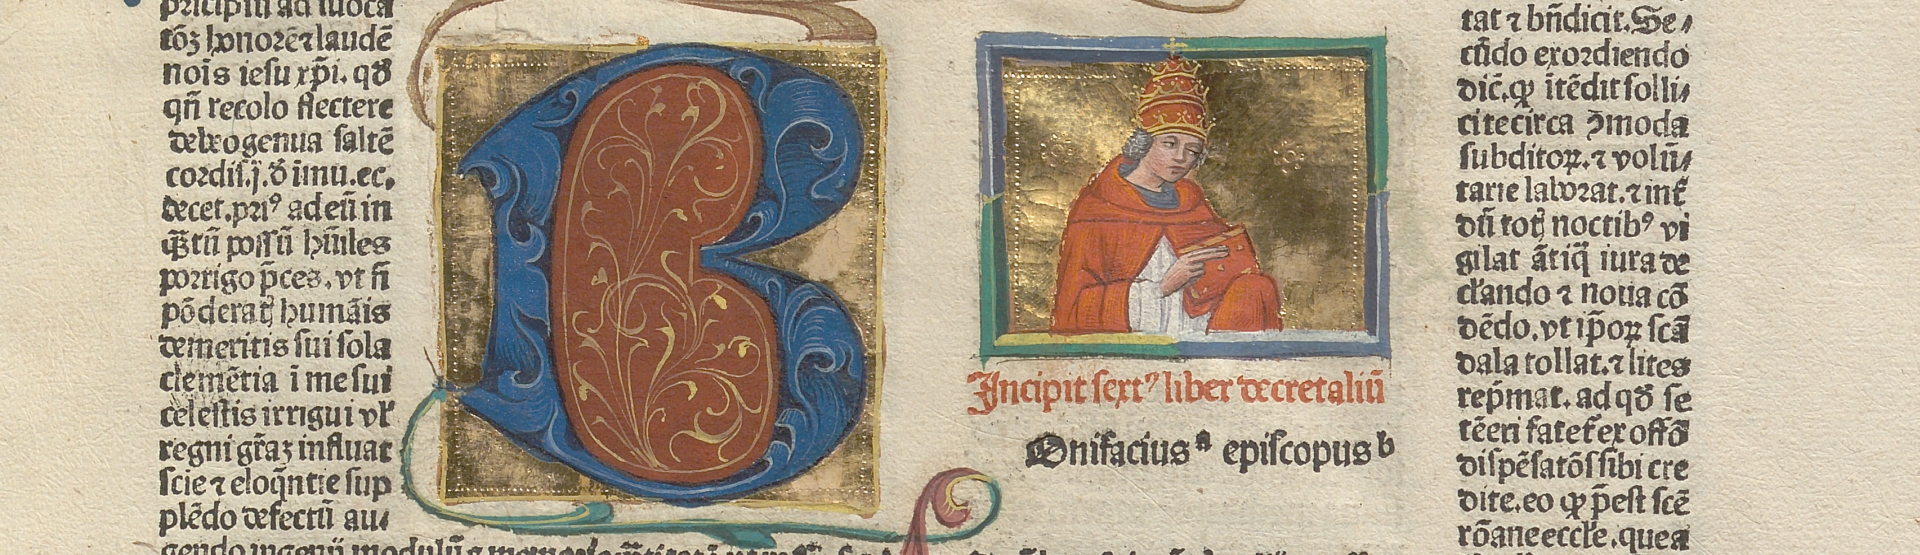 principiū ad īuoca
tōꝫ honorē ⁊ laudē
noīs iesu xp̄i. qð
qn̄ recolo flectere
debeo genua saltē
cordis. j. ð īmu. ec.
decet. priꝰ ad eū in
qͣꝫtū possū hūiles
porrigo p̄ces. vt si
pōderat᷒ humāis
demeritis sui sola
clemētia ī me sui
celestis irrigui vł
regni gr̄aꝫ influat
scīe ⁊ eloq̄ntie sup
plēdo defectū au⸗
gendo ingenij modulū ⁊
B
Incipit sextꝰ liber decretaliū
Onifaciusᵃ episcopusᵇ
tat ⁊ bn̄dicit. Se⸗
cūdo exordiendo
dic̄. ꝙ ītēdit solli⸗
cite circa ꝯmoda
subditoꝝ. ⁊ volū⸗
tarie laborat. ⁊ int̄
dū tot᷒ noctibꝰ vi
gilat āтiq̄ iura de
cl̄ando ⁊ noua cō
dēdo. vt ip̄oꝝ scā
dala tollat. ⁊ lites
rep̄mat. ad qð se
tēeri fatet᷒ ex offō
dispēsatōs sibi cre
dite. eo ꝙ p̄est scē
rōane eccl̄e. que a